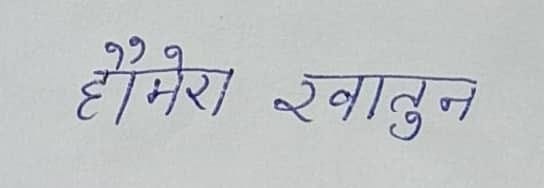 हौमेरा खातुन